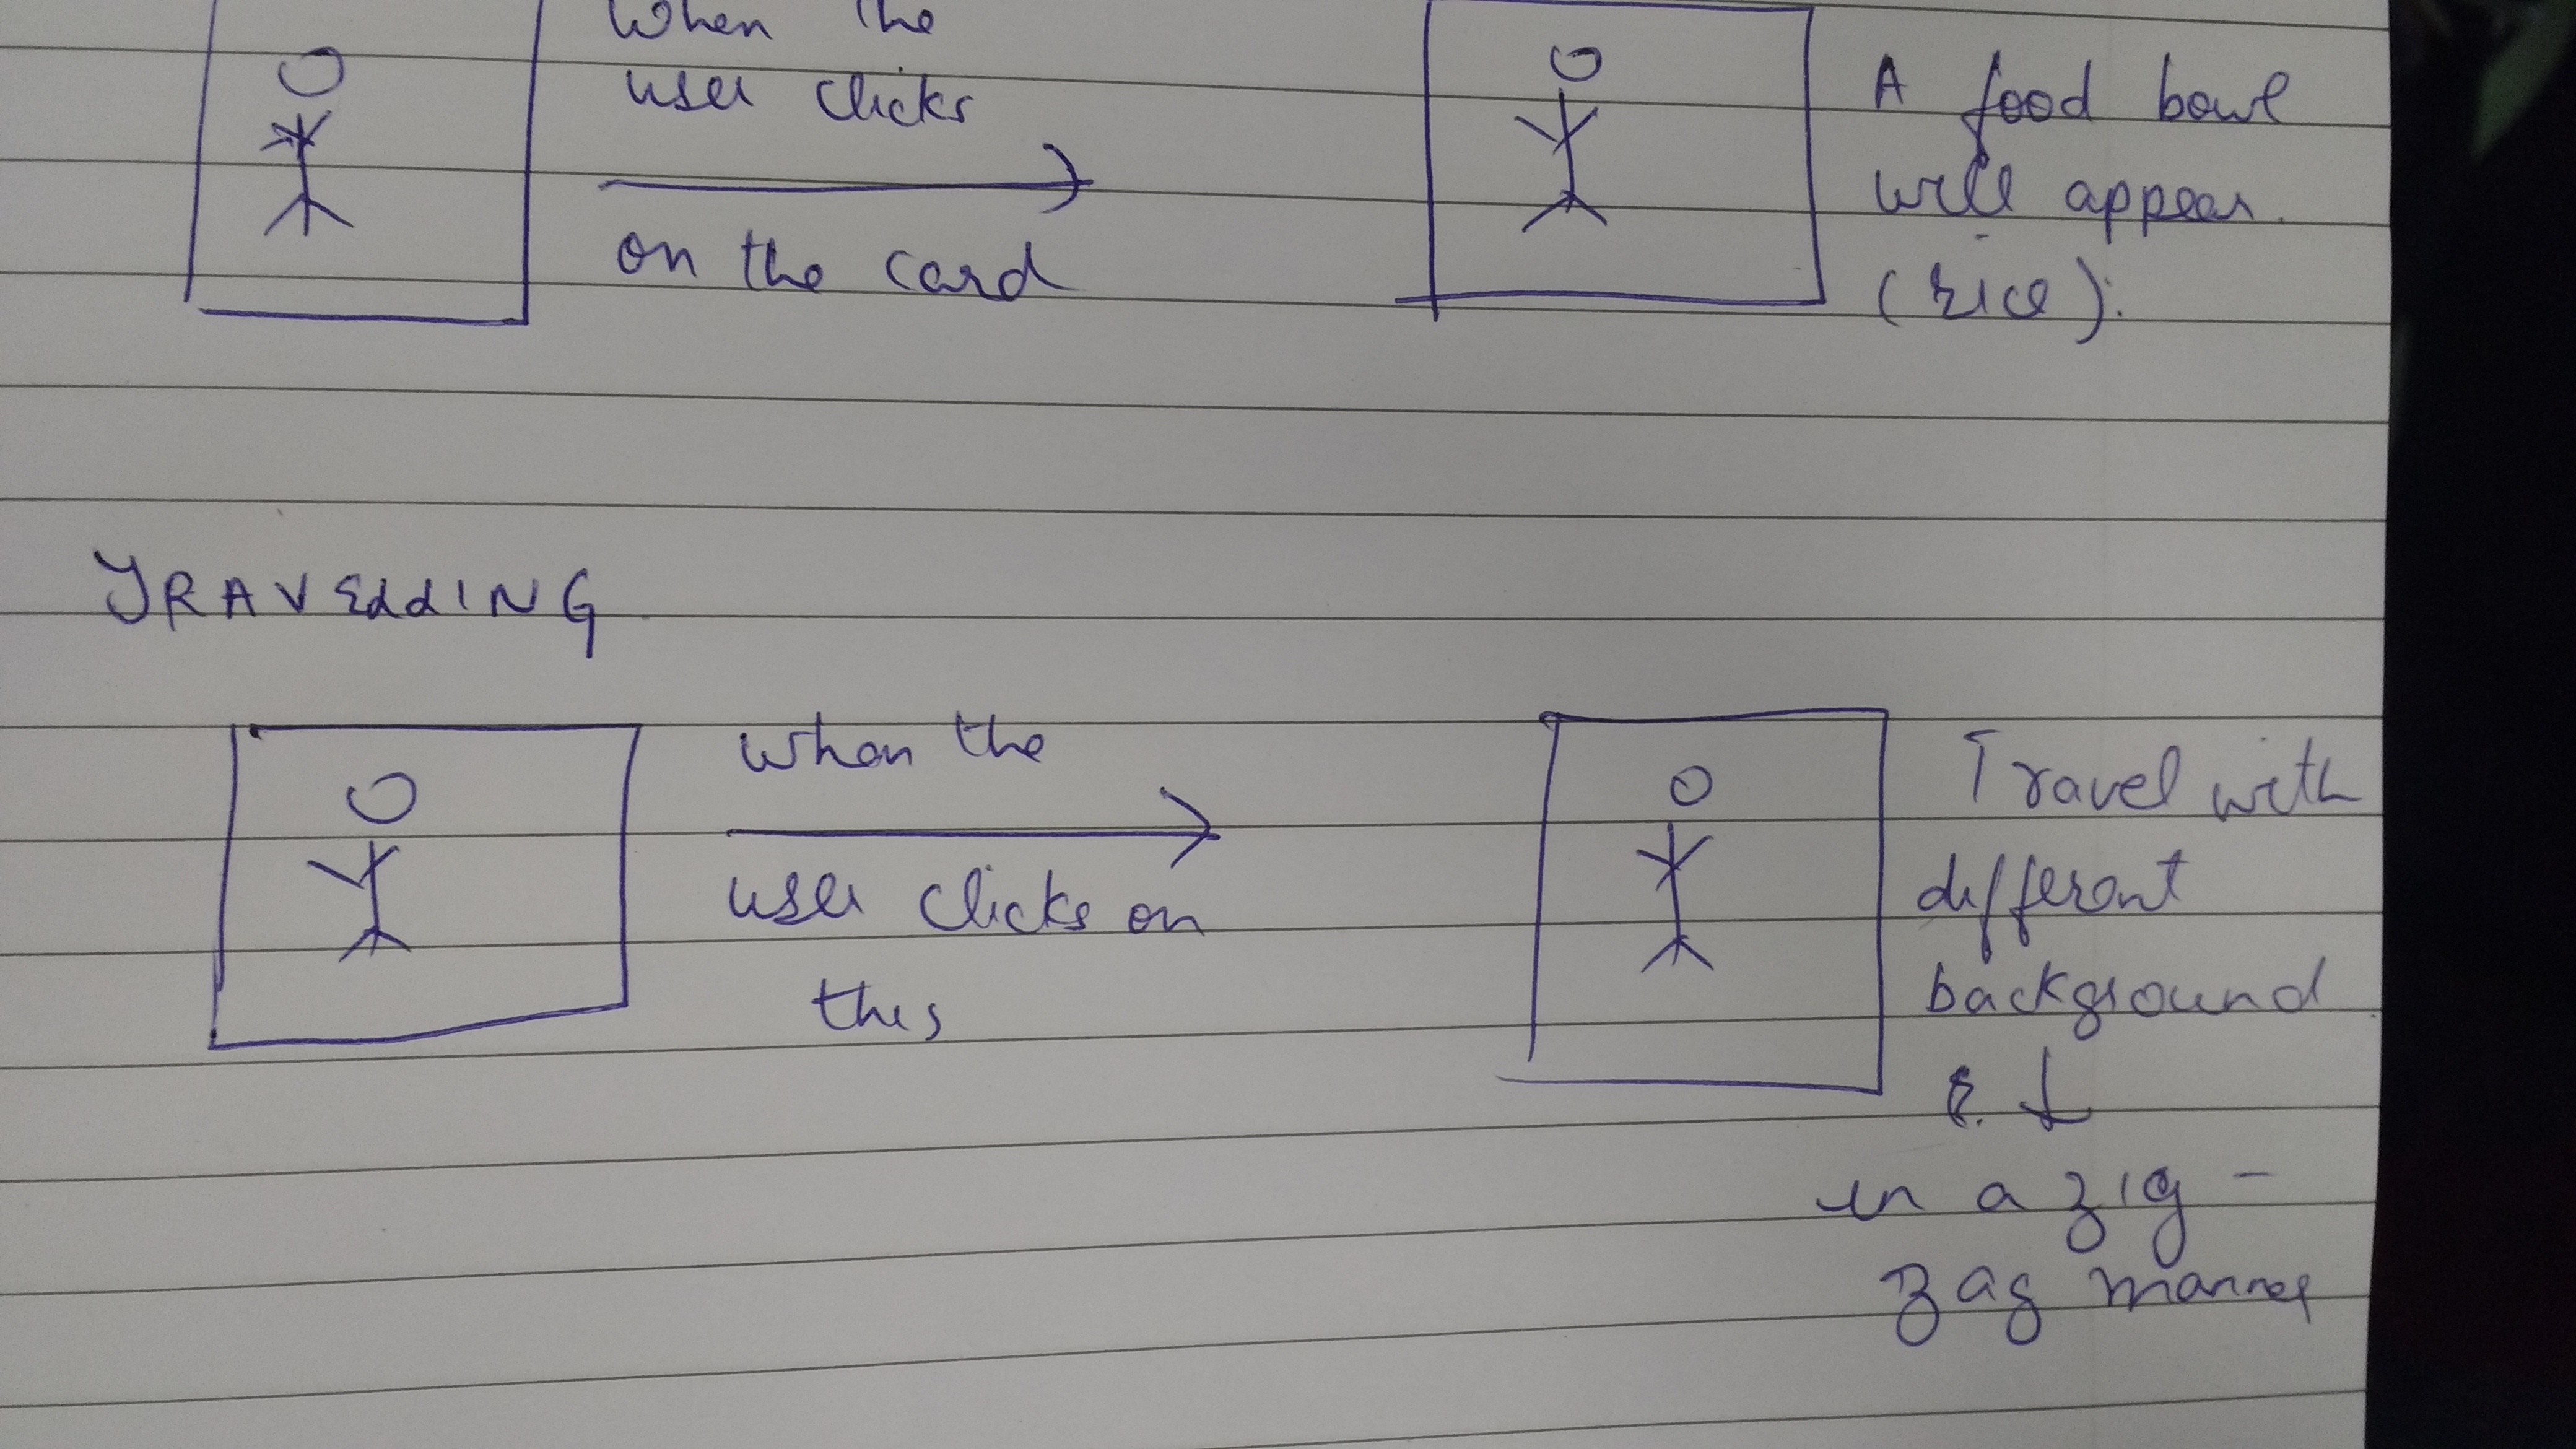 When the
user clicks
on the card
A food bowl
will appear.
(rice).
TRAVELLING
when the
user clicks on
this
Travel with
different
background
&
in a zig-
zag manner